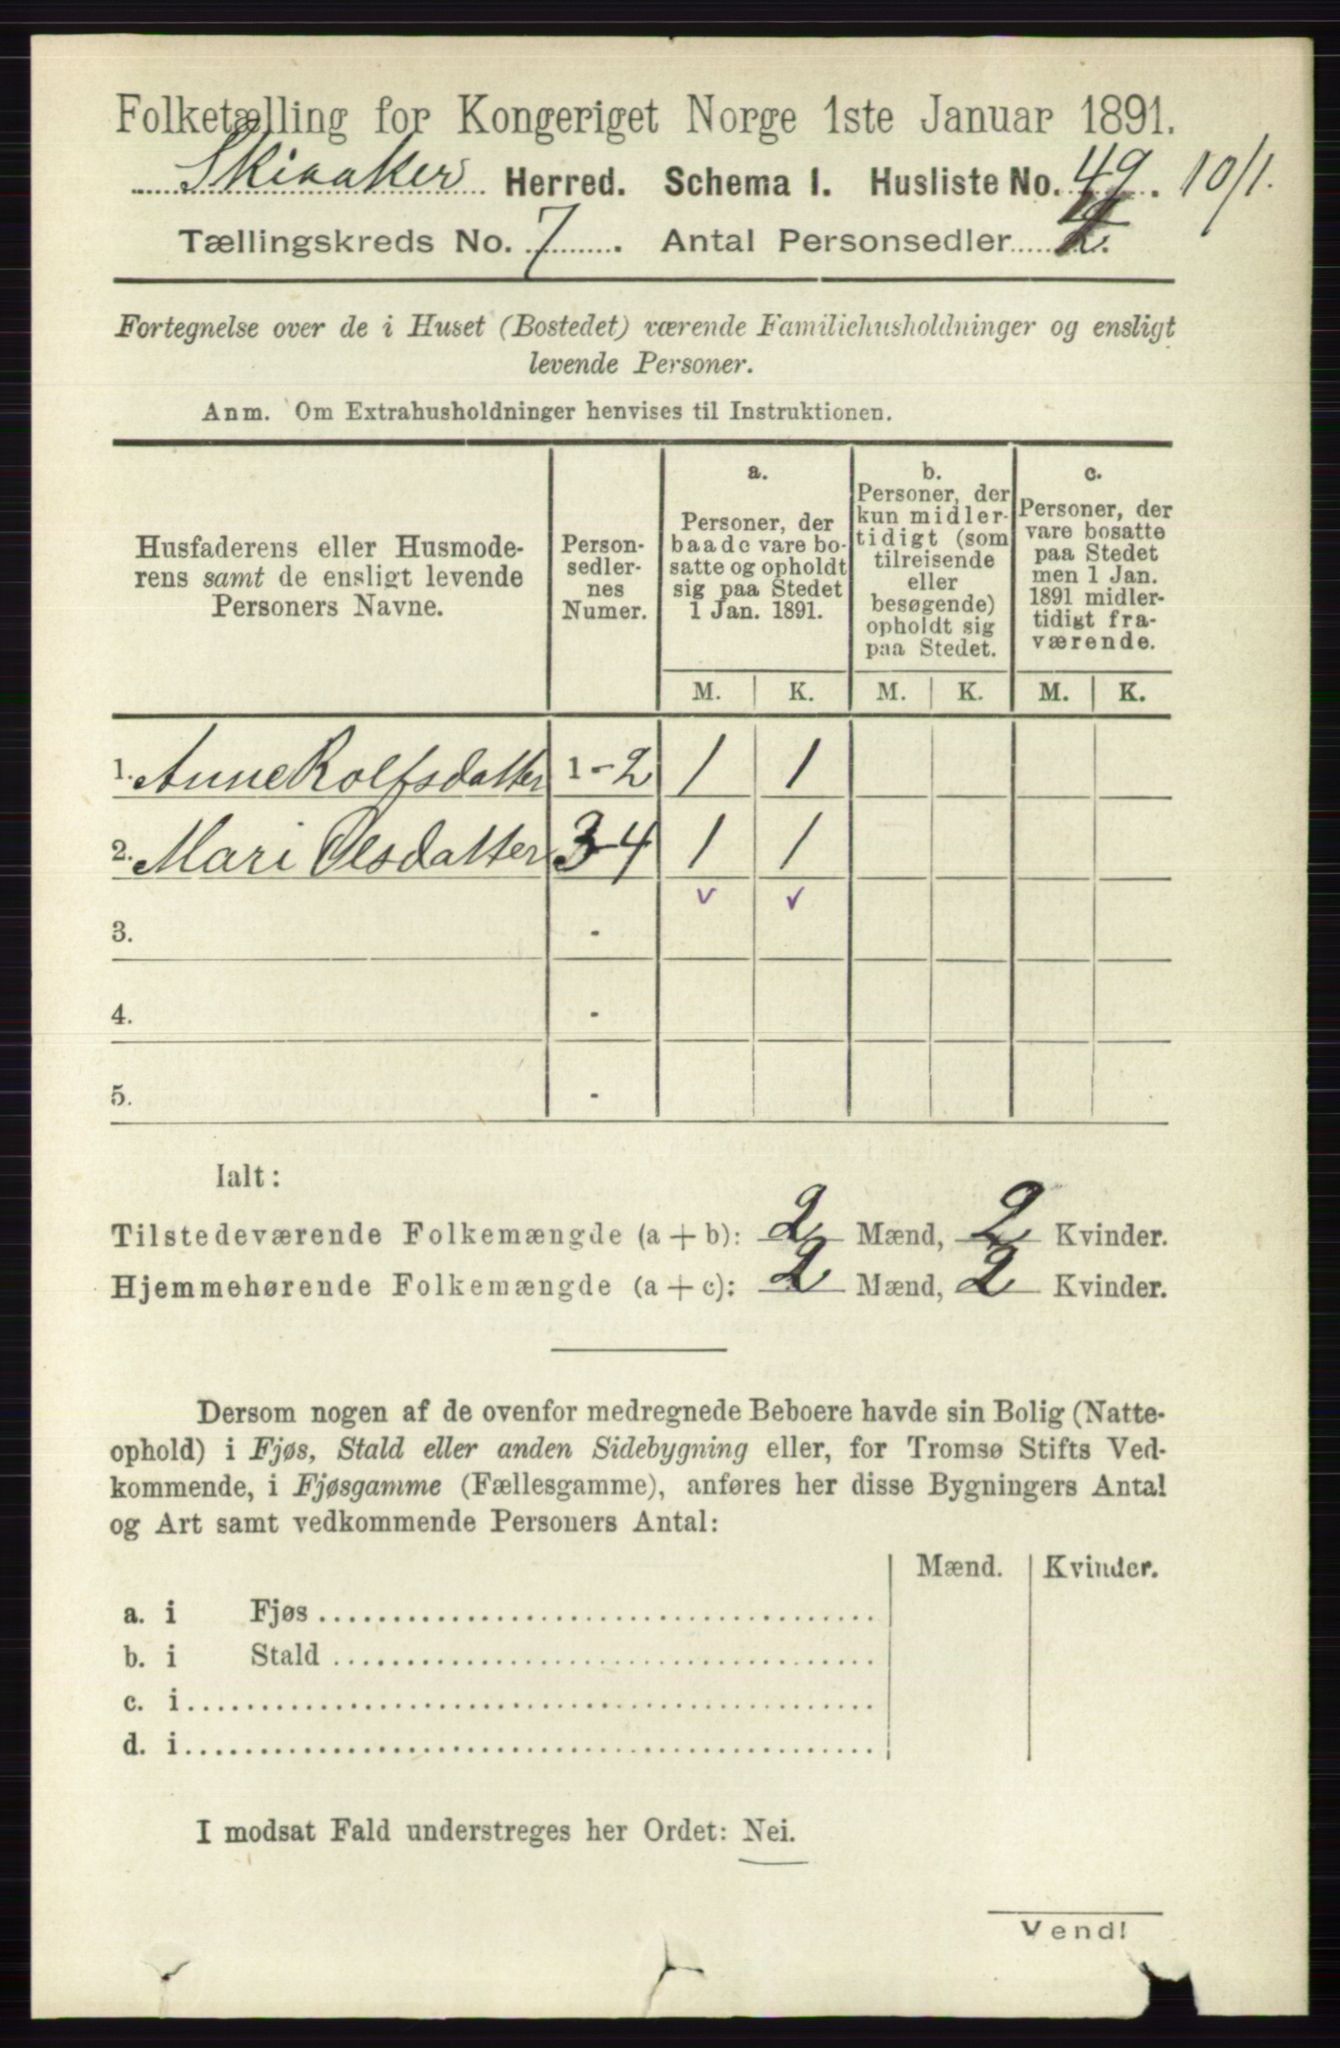 Folketælling for Kongeriget Norge 1ste Januar 1891.
Skiaaker Herred. Schema I. Husliste No. 49. 10/1.
Tællingskreds No. 7. Antal Personsedler 4.
Fortegnelse over de i Huset (Bostedet) værende Familiehusholdninger og ensligt
levende Personer.
Anm. Om Extrahusholdninger henvises til Instruktionen.
Husfaderens eller Husmode-
rens samt de ensligt levende
Personers Navne.
Person-
sedler-
nes
Numer.
a.
Personer, der
baade vare bo-
satte og opholdt
sig paa Stedet
1 Jan. 1891.
b.
Personer, der
kun midler-
tidigt (som
tilreisende
eller
besøgende)
opholdt sig
paa Stedet.
c.
Personer, der
vare bosatte
paa Stedet
men 1 Jan.
1891 midler-
tidigt fra-
værende.
M. K. M. K. M. K.
1. Anne Rolfsdatter 1-2 1 1
2. Mari Olsdatter 3-4 1 1
v ✓
3. -
4. -
5. -
Ialt:
Tilstedeværende Folkemængde (a + b): 2 Mænd, 2 Kvinder.
Hjemmehørende Folkemængde (a + c): 2 Mænd, 2 Kvinder.
Dersom nogen af de ovenfor medregnede Beboere havde sin Bolig (Natte-
ophold) i Fjøs, Stald eller anden Sidebygning eller, for Tromsø Stifts Ved-
kommende, i Fjøsgamme (Fællesgamme), anføres her disse Bygningers Antal
og Art samt vedkommende Personers Antal:
Mænd. Kvinder.
a. i Fjøs
b. i Stald
c. i
d. i
I modsat Fald understreges her Ordet: Nei.
Vend!